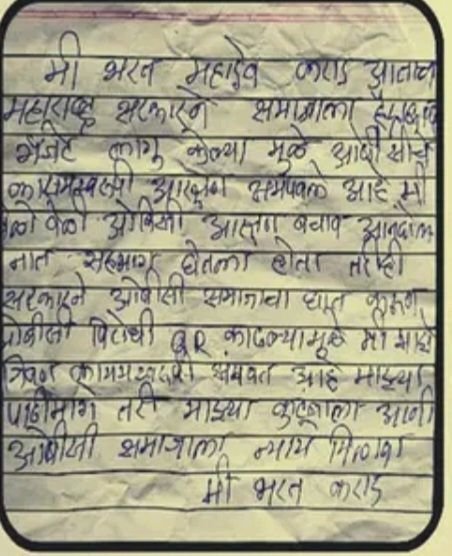 मी भरत महादेव कराड आताच
महाराष्ट्र सरकारने समाजाला हैद्राबाद
गॅजेट लागु केल्या मुळे ओबीसीचे
कायमस्वरूपी आरक्षण संपवले आहे मी
वेळो वेळी ओबिसी आरक्षण बचाव आनदोल
नात सहभाग घेतला होता तरीही
सरकारने ओबीसी समाजाचा घात करून
ओबीसी विरोधी GR काढल्यामुळे मी माझे
जिवन कायमस्वरूपी संपवत आहे माझ्या
पाठीमागे तरी माझ्या कुटूंबाला आणी
ओबीसी समाजाला न्याय मिळावा
मी भरत कराड